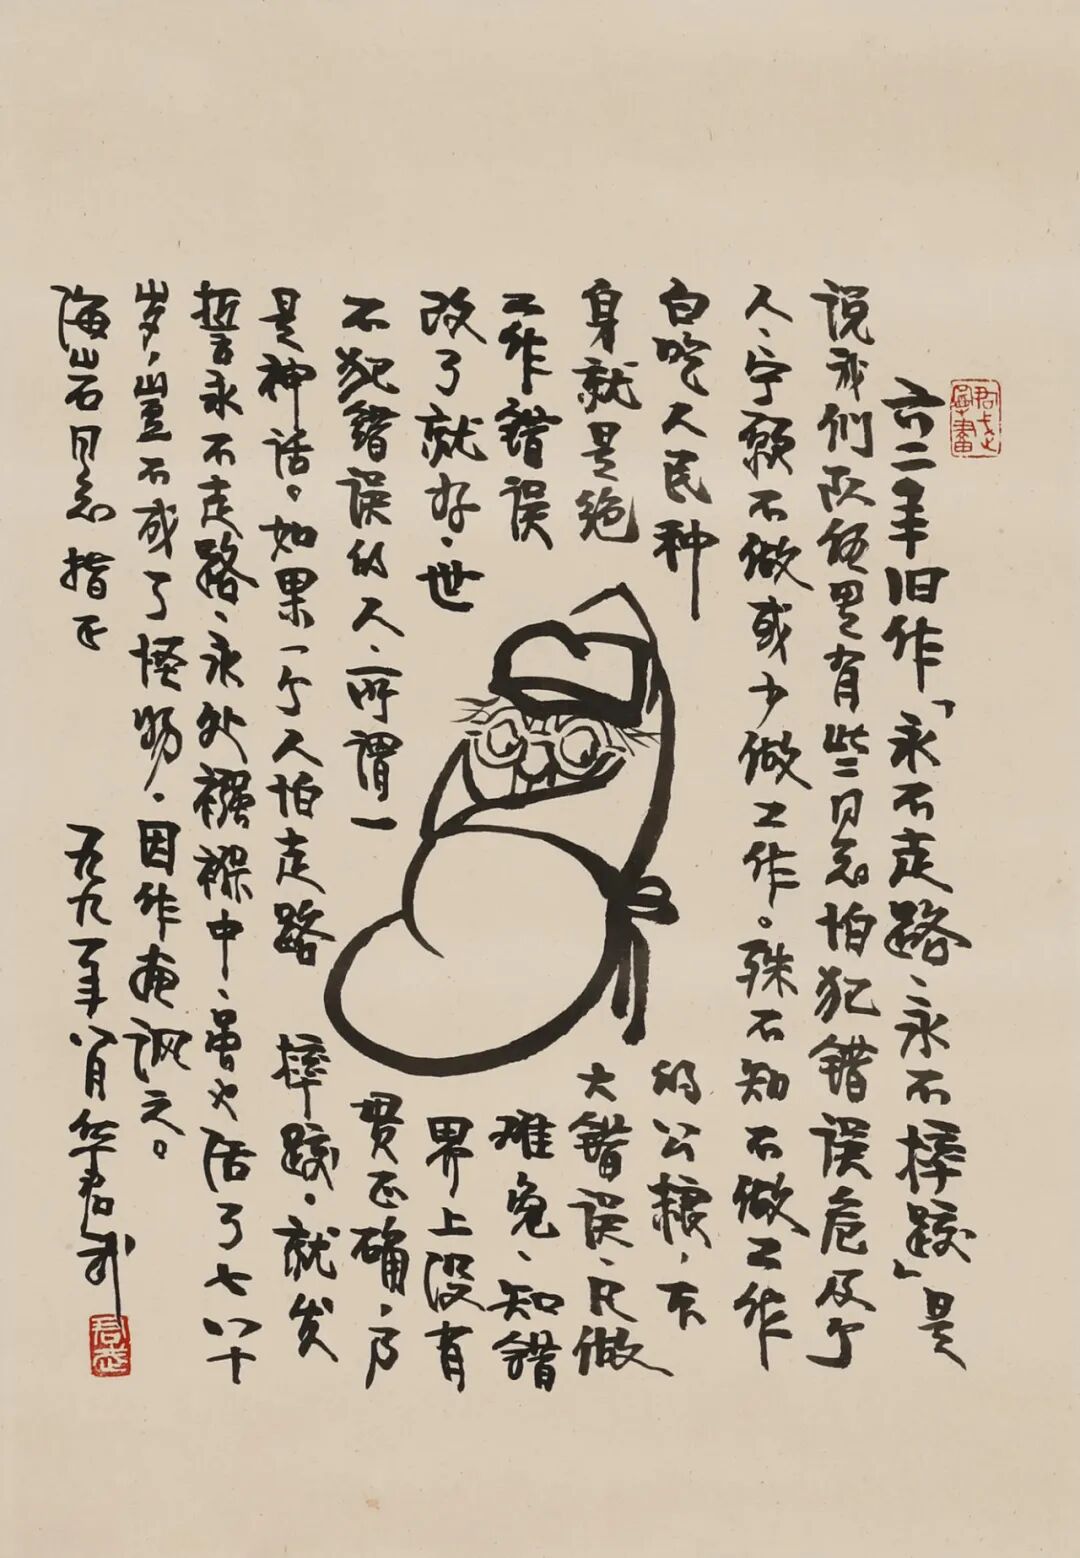 六二年旧作「永不走路、永不摔跤」是
说我们队伍里有些同志怕犯错误危及个
人、宁愿不做或少做工作。殊不知不做工作
白吃人民种的公粮，本
身就是绝大错误、只做
工作错误难免、知错
改了就好、世界上没有
不犯错误的人、所谓一贯正确、乃
是神话。如果一个人怕走路摔跤，就发
誓永不走路、永处襁褓中、活了七八十
岁，岂不成了怪物，因作画讽之。
海岩同志指正
一九九一年八月华君武
君武